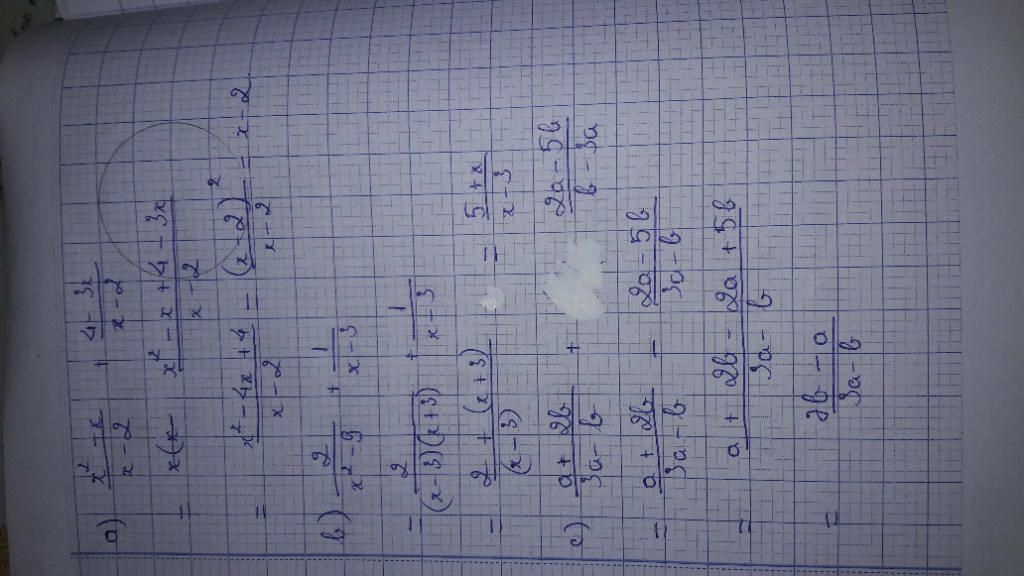 a) \frac{x² - x}{x - 2} + \frac{4 - 3x}{x - 2}
= x(x \frac{x² - x + 4 - 3x}{x - 2}
= \frac{x² - 4x + 4}{x - 2} = \frac{(x - 2)²}{x - 2} = x - 2
b) \frac{2}{x² - 9} + \frac{1}{x - 3}
= \frac{2}{(x - 3)(x + 3)} + \frac{1}{x - 3}
= \frac{2 + (x + 3)}{(x - 3)} = \frac{5 + x}{x - 3}
c) \frac{a + 2b}{3a - b} + \frac{2a - 5b}{b - 3a}
= \frac{a + 2b}{3a - b} - \frac{2a - 5b}{3a - b}
= \frac{a + 2b - 2a + 5b}{3a - b}
= \frac{7b - a}{3a - b}